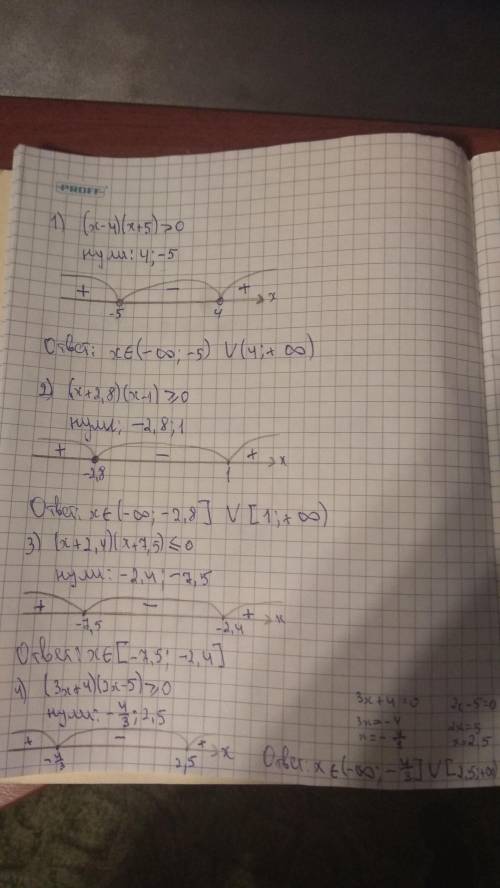 PROFF
1) (x-4)(x+5)>0
нули: 4; -5
+ - + x
-5 4
Ответ: x∈(-∞; -5) ∪ (4; +∞)
2) (x+2,8)(x-1)≥0
нули; -2,8; 1
+ - + x
-2,8 1
Ответ: x∈(-∞; -2,8] ∪ [1; +∞)
3) (x+2,4)(x+7,5)≤0
нули: -2,4; -7,5
+ - + x
-7,5 -2,4
Ответ: x∈[-7,5; -2,4]
4) (3x+4)(2x-5)≥0
нули: -4/3; 2,5
3x+4=0 2x-5=0
3x=-4 2x=5
x=-4/3 x=2,5
+ - + x
-4/3 2,5
Ответ: x∈(-∞; -4/3] ∪ [2,5; +∞)